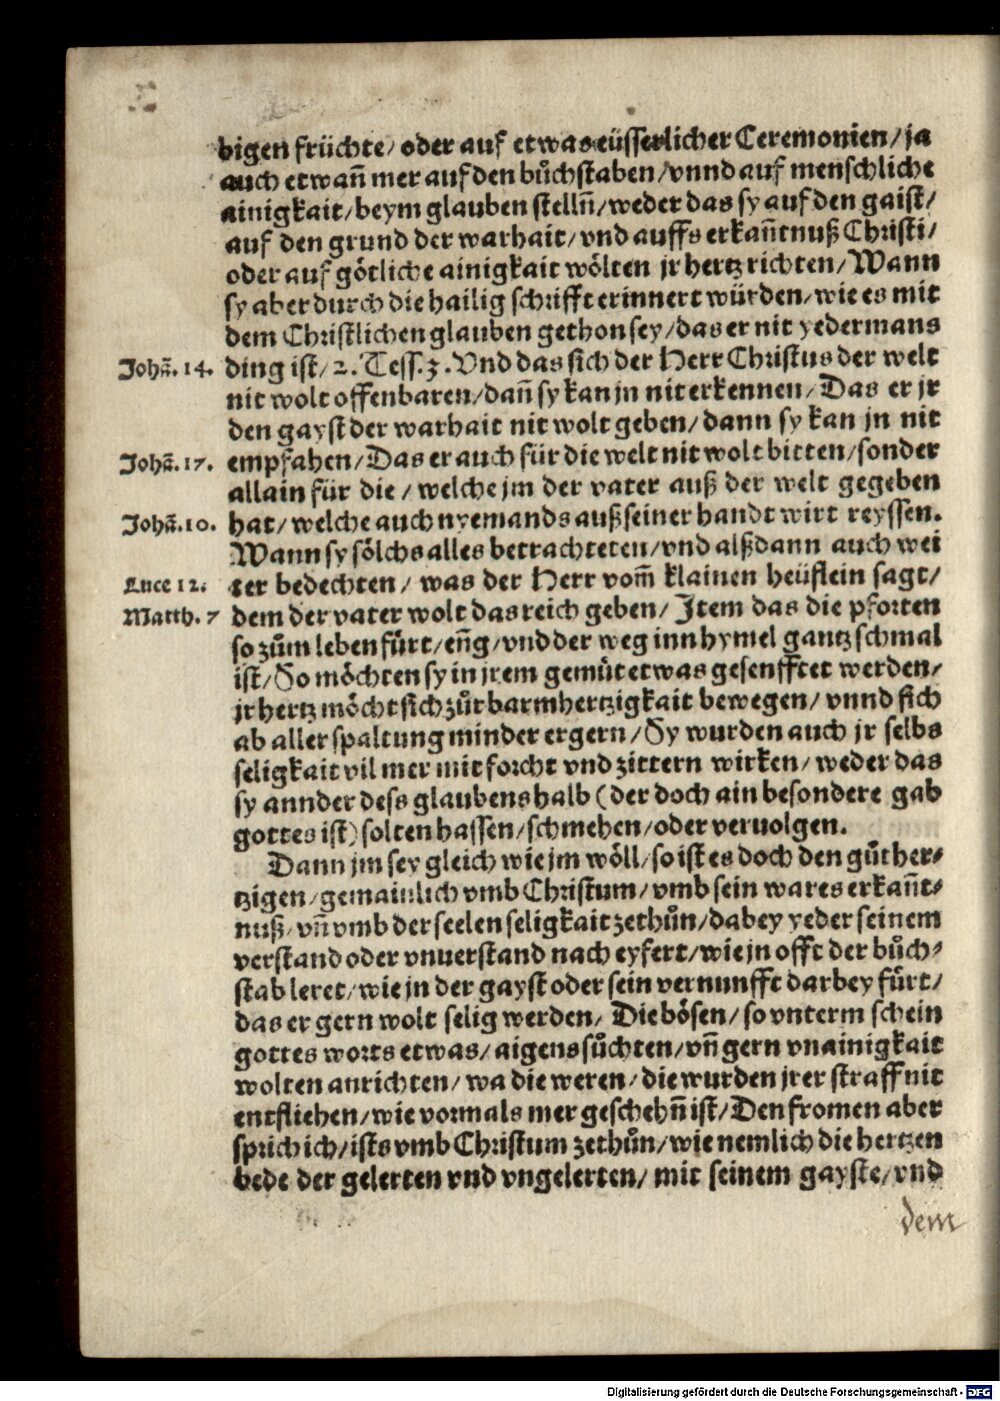 bigen früchte/ oder auf etwas eüsserlicher Ceremonien/ ja
auch etwañ mer auf den bůchstaben/ vnnd auf menschliche
ainigkait/ beym glauben stellñ/ weder das sy auf den gaist/
auf den grund der warhait/ vnd auffs erkañtnuß Christi/
oder auf götliche ainigkait wölten jr hertz richten/ Wann
sy aber durch die hailig schrifft erinnert würden/ wie es mit
dem Christlichen glauben gethon sey/ das er nit yedermans
Johã. 14. ding ist/ 2. Tess. 3. Vnd das sich der Herr Christus der welt
nit wolt offenbaren/ dañ sy kan jn nit erkennen/ Das er jr
den gayst der warhait nit wolt geben/ dann sy kan jn nit
Johã. 17. empfahen/ Das er auch für die welt nit wolt bitten/ sonder
allain für die/ welche jm der vater auß der welt gegeben
Johã. 10. hat/ welche auch nyemands auß seiner handt wirt reyssen.
Wann sy sölchs alles betrachteten/ vnd alßdann auch wei
Luce 12. ter bedechten/ was der Herr vom̃ klainen heüflein sagt/
Matth. 7 dem der vater wolt das reich geben/ Item das die pforten
so zům leben fürt/ eñg/ vnd der weg inn hymel gantz schmal
ist/ So möchten sy in jrem gemüt etwas gesenfftet werden/
jr hertz möcht sich zůr barmhertzigkait bewegen/ vnnd sich
ab aller spaltung minder ergern/ Sy wurden auch jr selbs
seligkait vil mer mit forcht vnd zittern wirken/ weder das
sy annder dess glaubens halb (der doch ain besondere gab
gottes ist) solten hassen/ schmehen/ oder veruolgen.
Dann jm sey gleich wie jm wöll/ so ist es doch den gůt her/
tzigen/ gemainlich vmb Christum/ vmb sein wares erkañt/
nuß/ vñ vmb der seelen seligkait zethůn/ dabey yeder seinem
verstand oder vnuerstand nach eyfert/ wie jn offt der bůch/
stab leret/ wie jn der gayst oder sein vernunfft darbey fürt/
das er gern wolt selig werden/ Die bösen/ so vnterm schein
gottes worts etwas/ aigens sůchten/ vñ gern vnainigkait
wolten anrichten/ wa die weren/ die wurden jrer straff nit
entfliehen/ wie vormals mer geschehñ ist/ Den fromen aber
sprich ich/ ists vmb Christum zethůn/ wie nemlich die hertzen
bede der gelerten vnd vngelerten/ mit seinem gayste/ vnd
dem
Digitalisierung gefördert durch die Deutsche Forschungsgemeinschaft - DFG